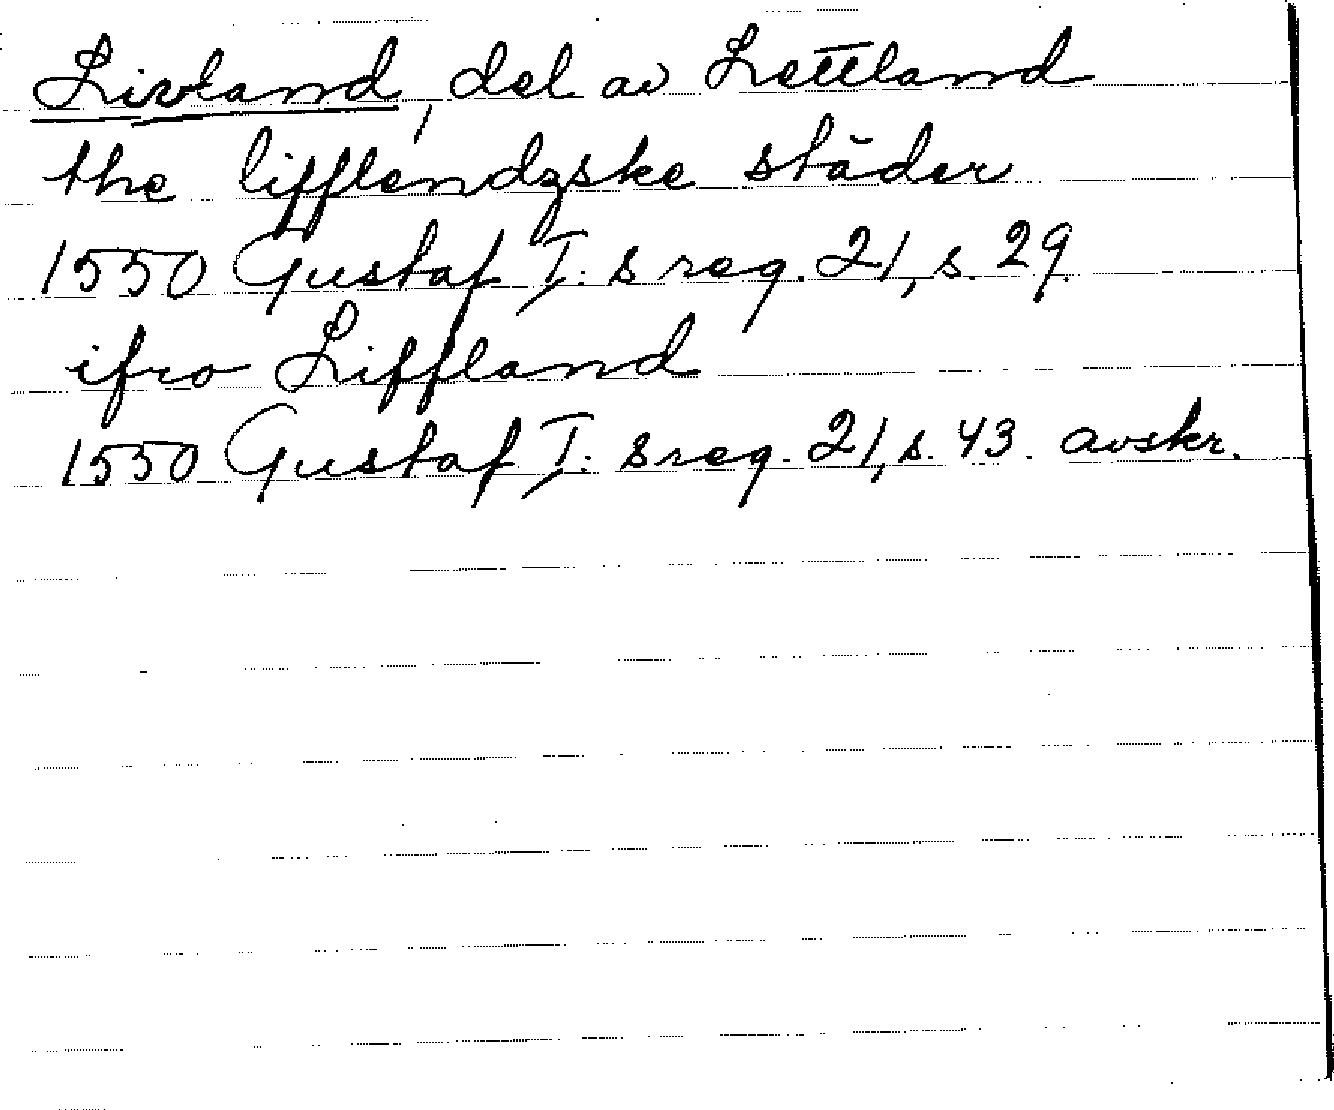 Livland, del av Lettland
the lifflendzske städer
1550 Gustaf I:s reg. 21, s. 29.
ifro Liffland
1550 Gustaf I:s reg. 21, s. 43. avskr.